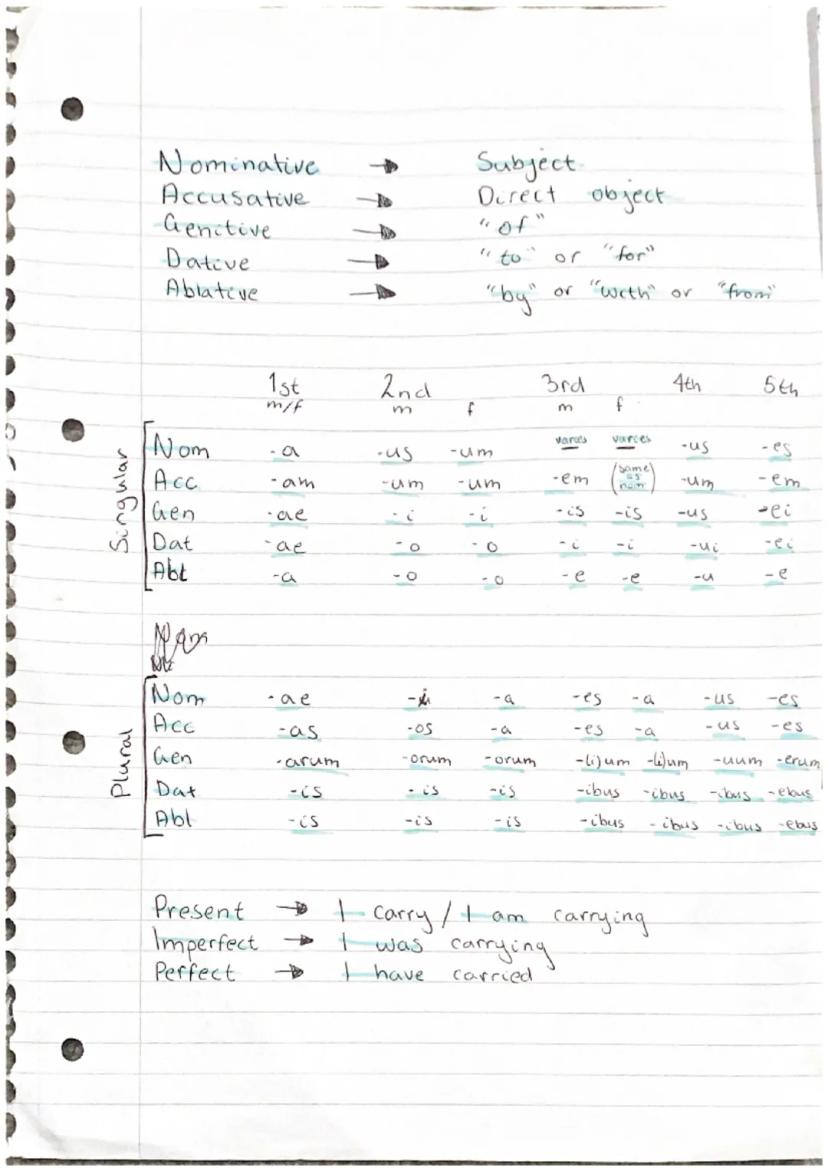 Nominative → Subject
Accusative → Direct object
Genitive → "of"
Dative → "to" or "for"
Ablative → "by" or "with" or "from"
1st 2nd 3rd 4th 5th
m/f m f m f
Singular
Nom -a -us -um varies varies -us -es
Acc -am -um -um -em (same as nom) -um -em
Gen -ae -i -i -is -is -us -ei
Dat -ae -o -o -i -i -ui -ei
Abl -a -o -o -e -e -u -e
Plural
Nom -ae -i -a -es -a -us -es
Acc -as -os -a -es -a -us -es
Gen -arum -orum -orum -(i)um -(i)um -uum -erum
Dat -is -is -is -ibus -ibus -ibus -ebus
Abl -is -is -is -ibus -ibus -ibus -ebus
Present → I carry / I am carrying
Imperfect → I was carrying
Perfect → I have carried